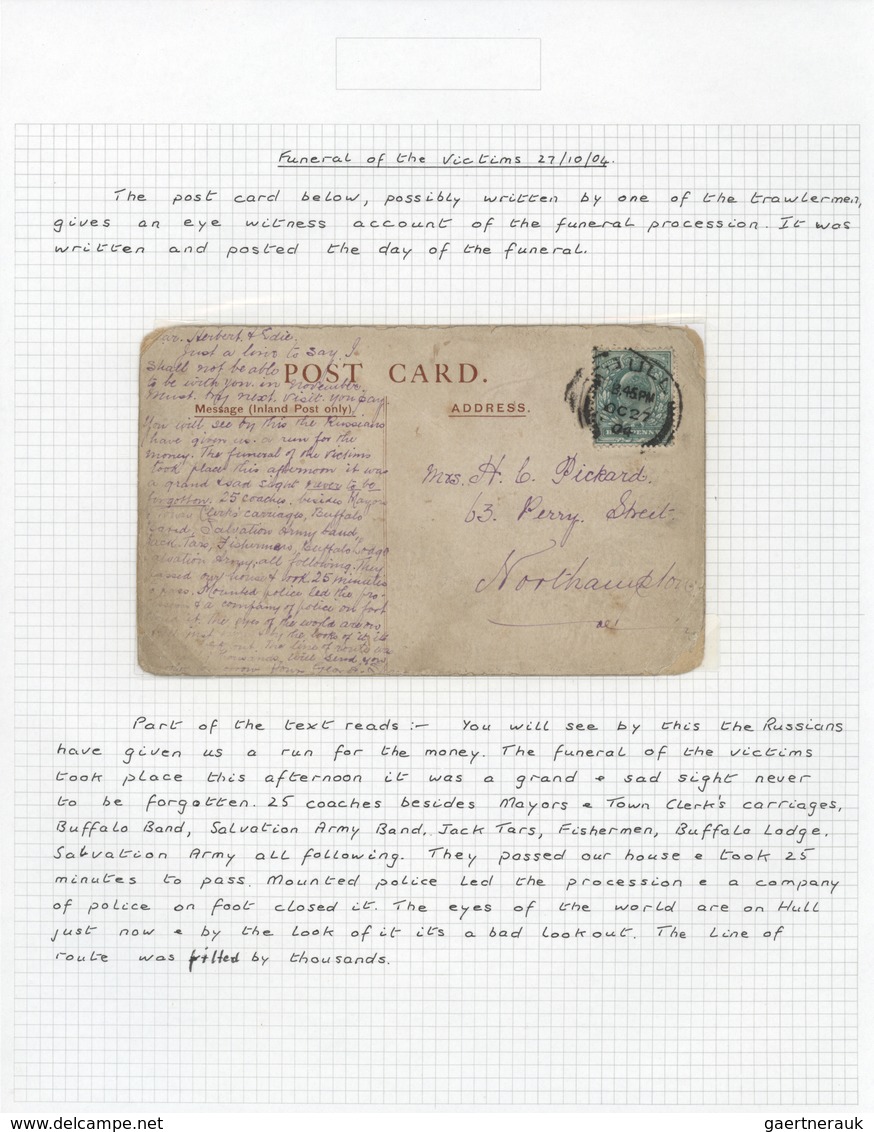 Funeral of the Victims 27/10/04.
The post card below, possibly written by one of the trawlermen,
gives an eye witness account of the funeral procession. It was
written and posted the day of the funeral.
Herbert & Edie.
Just a line to say I
shall not be able
to be with you in November
must. My next visit. You say
POST CARD.
Message (Inland Post only)
ADDRESS.
HULL
8.45PM
OC 27
04
You will see by this the Russians
have given us a run for the
money. The funeral of the victims
took place this afternoon it was
a grand & sad sight never to be
forgotten. 25 coaches. besides Mayors
Clerk's carriages, Buffalo
Band, Salvation Army band,
Jack Tars, Fishermen, Buffalo Lodge
Salvation Army, all following. They
passed our house & took 25 minutes
to pass. Mounted police led the pro-
& a company of police on foot
it. The eyes of the world are on
by the look of it its
line of route
will send you
Mrs. H. C. Pickard.
63. Perry. Street.
Northampton
Part of the text reads :- You will see by this the Russians
have given us a run for the money. The funeral of the victims
took place this afternoon it was a grand & sad sight never
to be forgotten. 25 coaches besides Mayors & Town Clerk's carriages,
Buffalo Band, Salvation Army Band, Jack Tars, Fishermen, Buffalo Lodge.
Salvation Army all following. They passed our house & took 25
minutes to pass. Mounted police led the procession & a company
of police on foot closed it. The eyes of the world are on Hull
just now & by the look of it its a bad lookout. The line of
route was filled by thousands.
www.delcampe.net
gaertnerauk